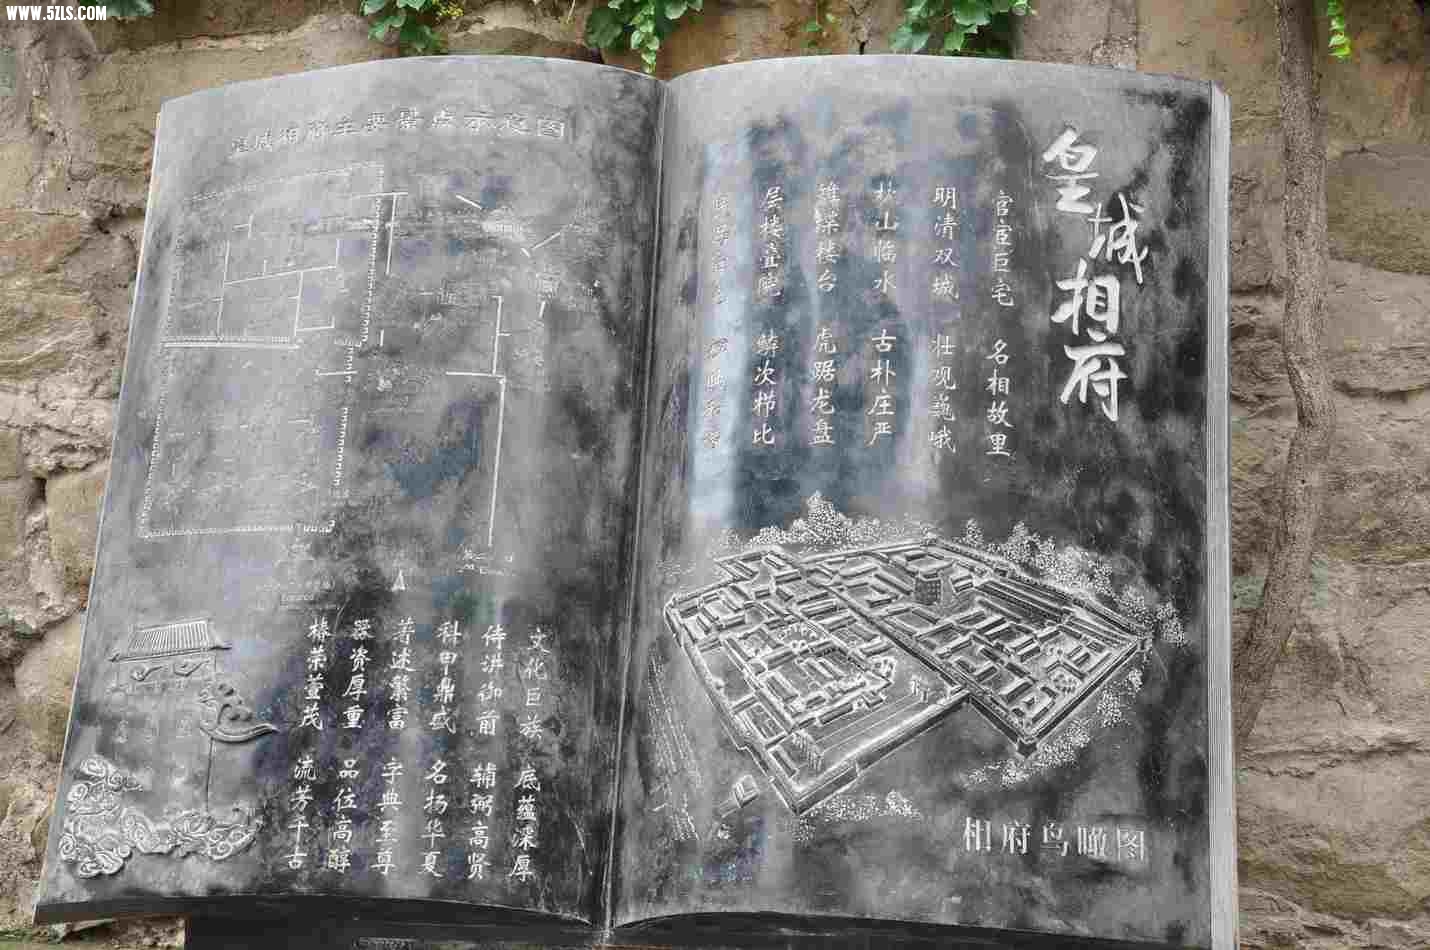 WWW.5ZLS.COM
皇城相府
官宦巨宅 名相故里
明清双城 壮观巍峨
枕山临水 古朴庄严
雉堞楼台 虎踞龙盘
层楼叠院 鳞次栉比
相府鸟瞰图
皇城相府主要景点示意图
文化巨族 底蕴深厚
侍讲御前 辅弼高贤
科甲鼎盛 名扬华夏
著述繁富 字典至尊
器资厚重 品位高醇
椿荣萱茂 流芳千古